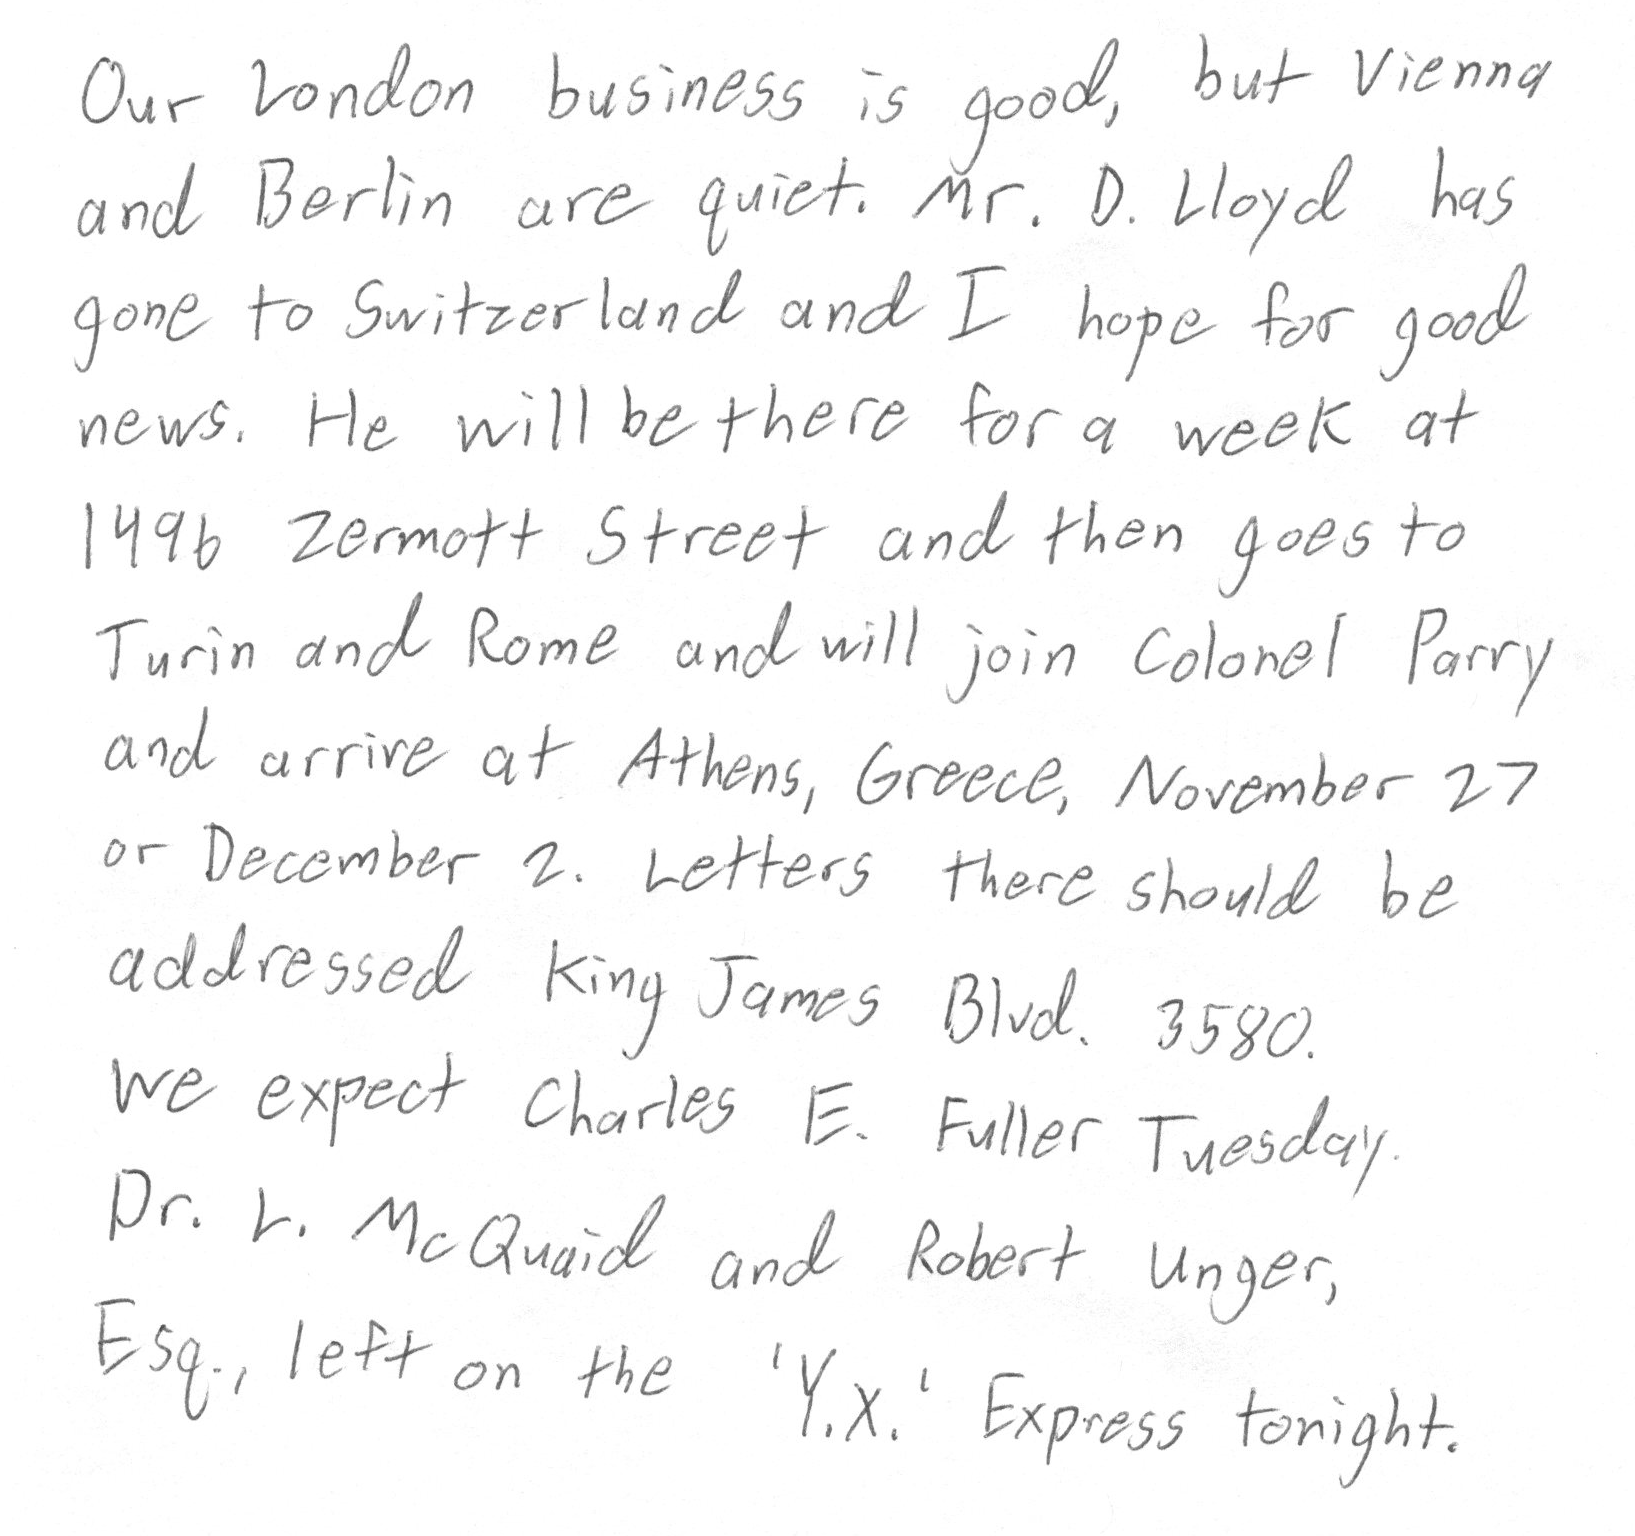 Our London business is good, but Vienna
and Berlin are quiet. Mr. D. Lloyd has
gone to Switzerland and I hope for good
news. He will be there for a week at
1496 Zermott Street and then goes to
Turin and Rome and will join Colonel Parry
and arrive at Athens, Greece, November 27
or December 2. Letters there should be
addressed King James Blvd. 3580.
We expect Charles E. Fuller Tuesday.
Dr. L. McQuaid and Robert Unger,
Esq., left on the 'Y.X.' Express tonight.